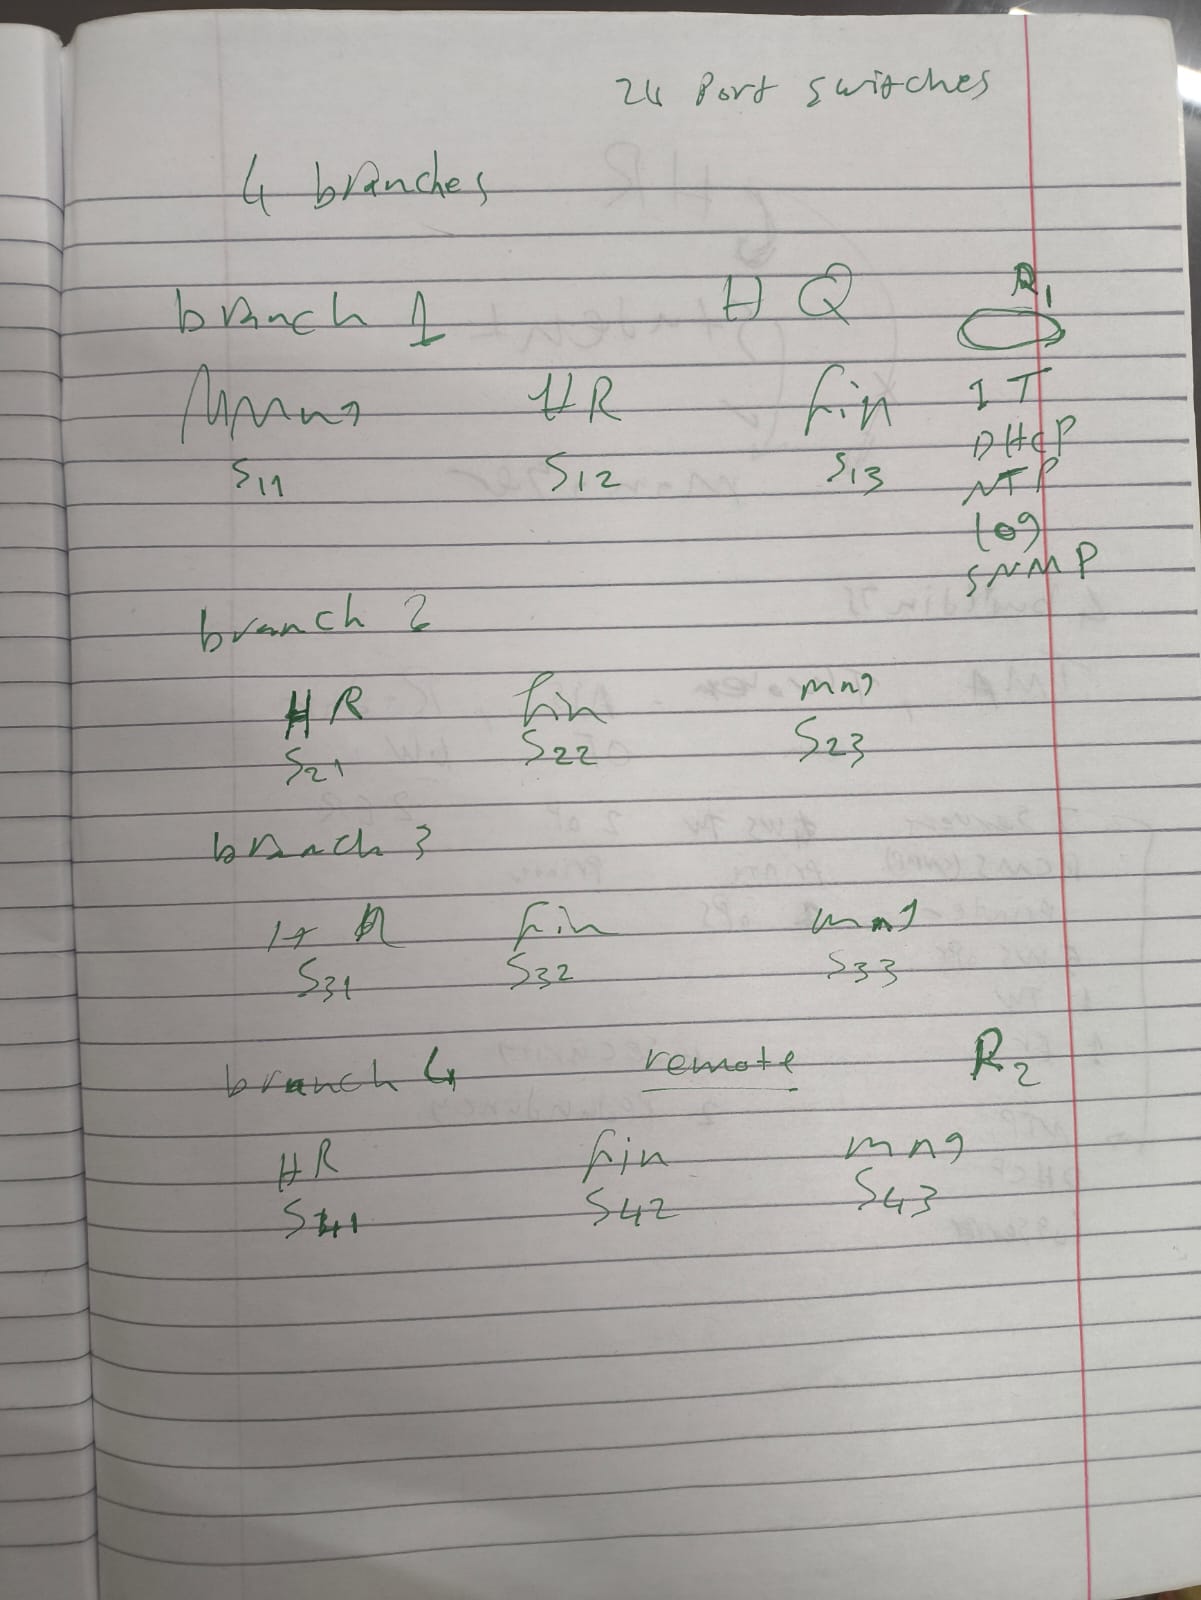 24 Port switches
4 branches
branch 1 HQ R1
Mng HR fin IT
S11 S12 S13 DHCP
NTP
log
SNMP
branch 2
HR fin mng
S21 S22 S23
branch 3
HR fin mng
S31 S32 S33
branch 4 remote R2
HR fin mng
S41 S42 S43